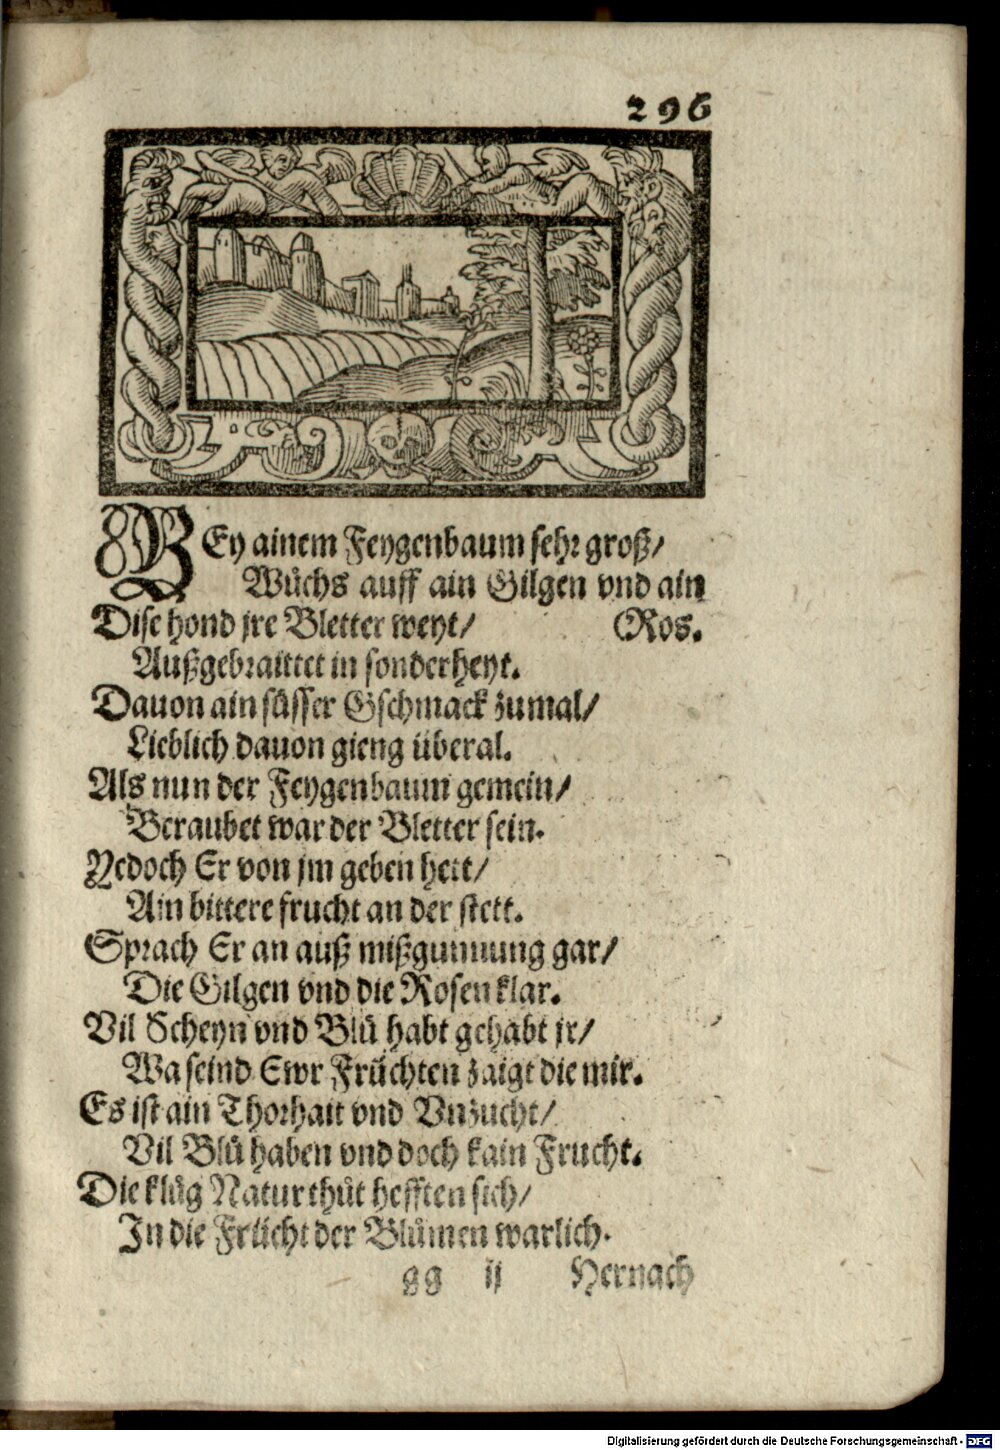 296
BEy ainem Feygenbaum sehr groß/
Wůchs auff ain Gilgen vnd ain
Dise hond jre Bletter weyt/ Ros.
Außgebraittet in sonderheyt.
Dauon ain süsser Gschmack zumal/
Lieblich dauon gieng überal.
Als nun der Feygenbaum gemein/
Beraubet war der Bletter sein.
Yedoch Er von jm geben hett/
Ain bittere frucht an der stett.
Sprach Er an auß mißgunnung gar/
Die Gilgen vnd die Rosen klar.
Vil Scheyn vnd Blů habt gehabt jr/
Wa seind Ewr Früchten zaigt die mir.
Es ist ain Thorhait vnd Vnzucht/
Vil Blů haben vnd doch kain Frucht.
Die klůg Natur thůt hefften sich/
In die Frücht der Blůmen warlich.
gg ij Hernach
Digitalisierung gefördert durch die Deutsche Forschungsgemeinschaft - DFG